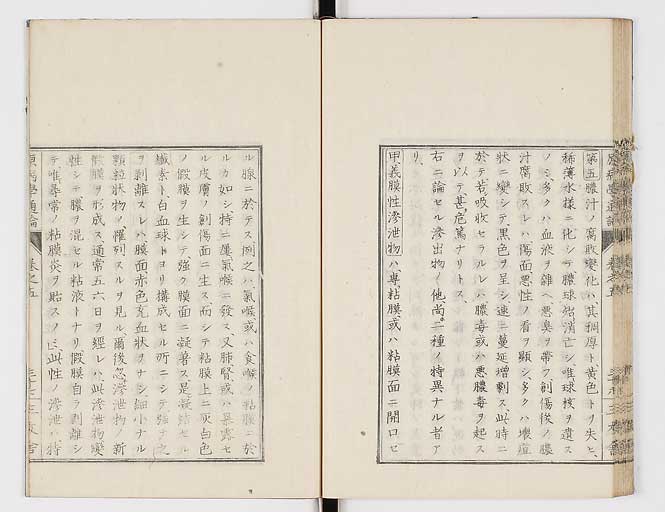 第五膿汁ノ腐敗變化ハ其稠厚ト黄色トヲ失ヒ、
稀薄水様ニ化シテ、膿球殆消亡シ唯球核ヲ遺ス
ノミ、多クハ血液ヲ雜ヘ、悪臭ヲ帶フ、創傷後ノ膿
汁腐敗スレハ傷面悪性ノ看ヲ顯シ、多クハ壊疽
状ニ變シテ、黒色ヲ呈シ、速ニ蔓延増劇ス、此時ニ
於テ、若吸收セラルレハ膿毒或ハ悪膿毒ヲ起ス
ヲ以テ、甚危篤ナリトス、
右ニ論セル滲出物ノ他尚二種ノ特異ナル者ア
リ、
甲義膜性滲泄物ハ專粘膜或ハ粘膜面ニ開口セ
ル腺ニ於テス、例之ハ氣喉或ハ食喉ノ粘膜ニ於
ルカ如シ、特ニ屢氣喉ニ發ス、又肺腎或ハ暴露セ
ル皮膚ノ創傷面ニ生ス、而シテ粘膜上ニ灰白色
ノ假膜ヲ生シテ、強ク膜面ニ凝着ス、是凝結セル
纖素ト白血球トヨリ構成セル所ニシテ、強テ之
ヲ剥離スレハ膜面赤色充血状ヲナシ、細小ナル
顆粒状物ノ羅列スルヲ見ル、爾後忽滲泄物ノ新
假膜ヲ形成ス、通常五六日ヲ經レハ此滲泄物變
性シテ、膿ヲ混セル粘液トナリ、假膜自ラ剥離シ
テ、唯尋常ノ粘膜炎ヲ貽スノミ、此性ノ滲泄ハ特
原病學通論 卷之五